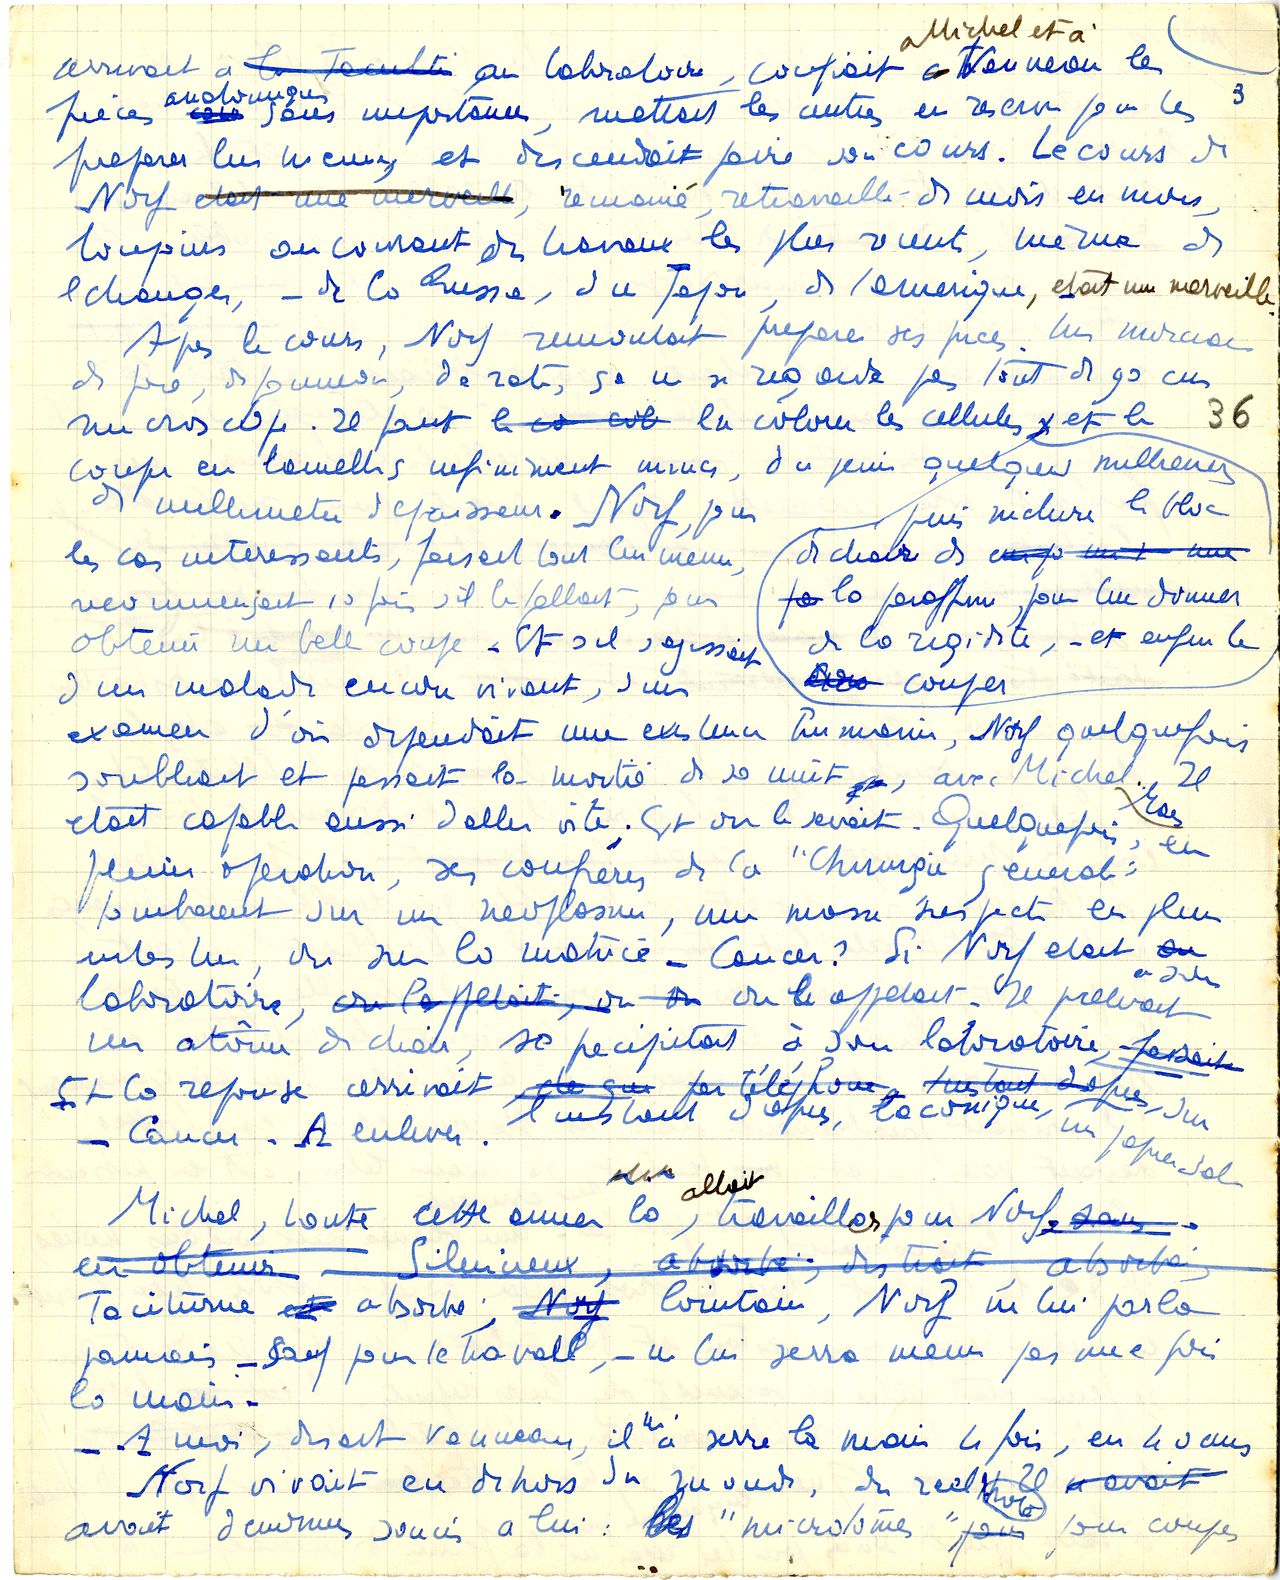 a Michel et à
arrivait à la Faculté au laboratoire, confiait a Vanneau les
3
pièces anatomiques sans importance, mettait les autres en reserve pour les
preparer lui meme, et descendait faire son cours. Le cours de
Norf etait une merveille, remanié, retravaillé de mois en mois,
toujours au courant des travaux les plus recents, même de
l'etranger, – de la Russie, du Japon, de l'amerique, etait une merveille.
Apres le cours, Norf remontait preparer ses pieces. Un morceau
de foie, de poumon, de rate, ça ne se regarde pas tout de go au
microscope. Il faut le co col lui colorer les cellules, et le
36
couper en lamelles infiniment minces, du genre quelques milliemes
de millimetre d'epaisseur. Norf, pour
puis inclure le bloc
les cas interessants, faisait tout lui meme,
de chair de une
recommençait 10 fois s'il le fallait, pour
la paraffine, pour lui donner
obtenir une belle coupe. Et s'il s'agissait
de la rigidité, – et enfin le
d'un malade encore vivant, d'un
couper
examen d'où dependait une existence humaine, Norf quelquefois
s'oubliait et passait la moitié de sa nuit, avec Michel. Il
etait capable aussi d'aller vite. Et on le savait. Quelquefois, en
pleine operation, ses confreres de la "Chirurgie generale"
tombaient sur un neoplasme, une masse suspecte en plein
intestin, ou sur la matrice – Cancer? Si Norf etait au
a son
laboratoire, on l'appelait, on on on le appelait. Il prelevait
un atôme de chair, se precipitait à son laboratoire, faisait
Et la reponse arrivait par téléphone, l'instant d'apres,
l'instant d'apres, laconique, sur
un papier sale
– Cancer. A enlever.
allait
Michel, toute cette annee la, travailler pour Norf, sans
en obtenir – Silencieux, absorbé, distrait, absorbé,
Taciturne et absorbé, Norf lointain, Norf ne lui parla
jamais – sauf pour le travail, – ne lui serra meme pas une fois
la main –
– A moi, disait Vanneau, il m'a serré la main 4 fois, en 40 ans
Norf vivait en dehors du monde, du reel. Il avait
avait d'enormes soucis a lui : les "microtômes" pour pour couper